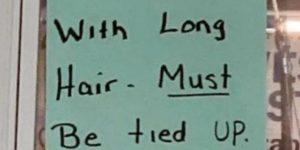 With Long
Hair - Must
Be tied UP.